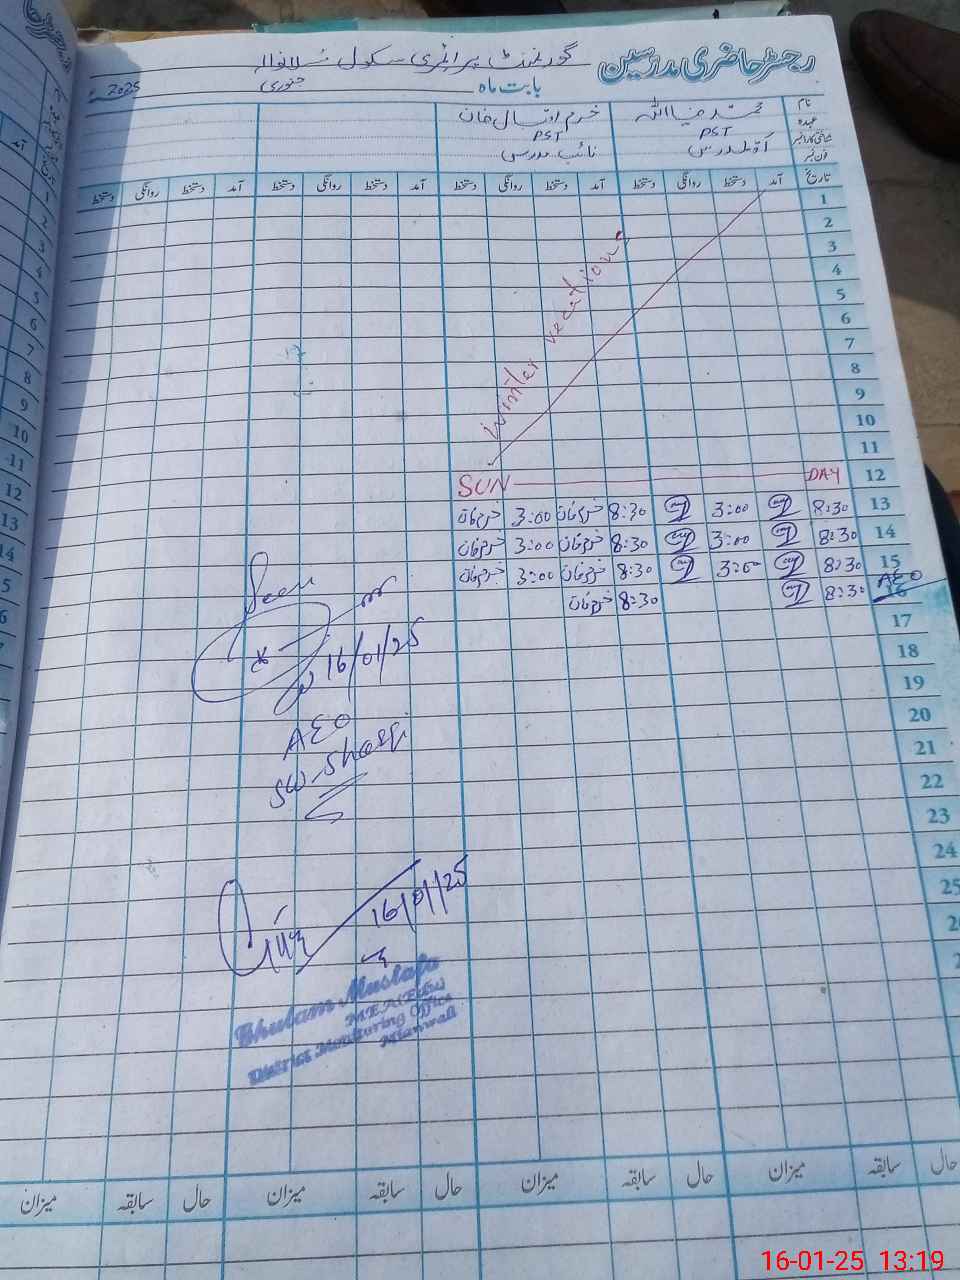 رجسٹر حاضری مدرسین گورنمنٹ پرائمری سکول
بابت ماہ جنوری 2025
نام محمد ضیا اللہ خرم اقبال خان
عہدہ PST PST
نائب مدرس
فون نمبر
تاریخ آمد دستخط روانگی دستخط آمد دستخط روانگی دستخط آمد دستخط روانگی دستخط آمد دستخط روانگی دستخط
1
2
3
4
5
6
7
8
9
10
11
winter vecations
12 SUN DAY
13 8:30 3:00 8:30 خرم خان 3:00 خرم خان
14 8:30 3:00 8:30 خرم خان 3:00 خرم خان
15 8:30 3:00 8:30 خرم خان 3:00 خرم خان
16 AEO 8:30 8:30 خرم خان
17
18
19
20
21
22
23
24
25
Seen
16/01/25
AEO
SW-Sharqi
16/01/25
Ghulam Mustafa
M.E.A (Edu)
District Monitoring Office
Mianwali
حال سابقہ میزان حال سابقہ میزان حال سابقہ میزان حال سابقہ میزان
16-01-25 13:19